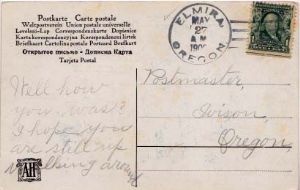 Postkarte Carte postale
Weltpostverein Union postale universelle
Levelezö-Lap Correspondenzkarte Dopisnice
Kartakorrespondencyjna Korespondenční lístek
Briefkaart Cartolina postale Postcard Brefkort
Открытое письмо - Дописна Карта
Tarjeta Postal
ELMIRA
MAY
27
A M
OREGON
Postmaster,
Ivison,
Oregon
Well how
you was!!
I hope you
are still up
walking around
AH